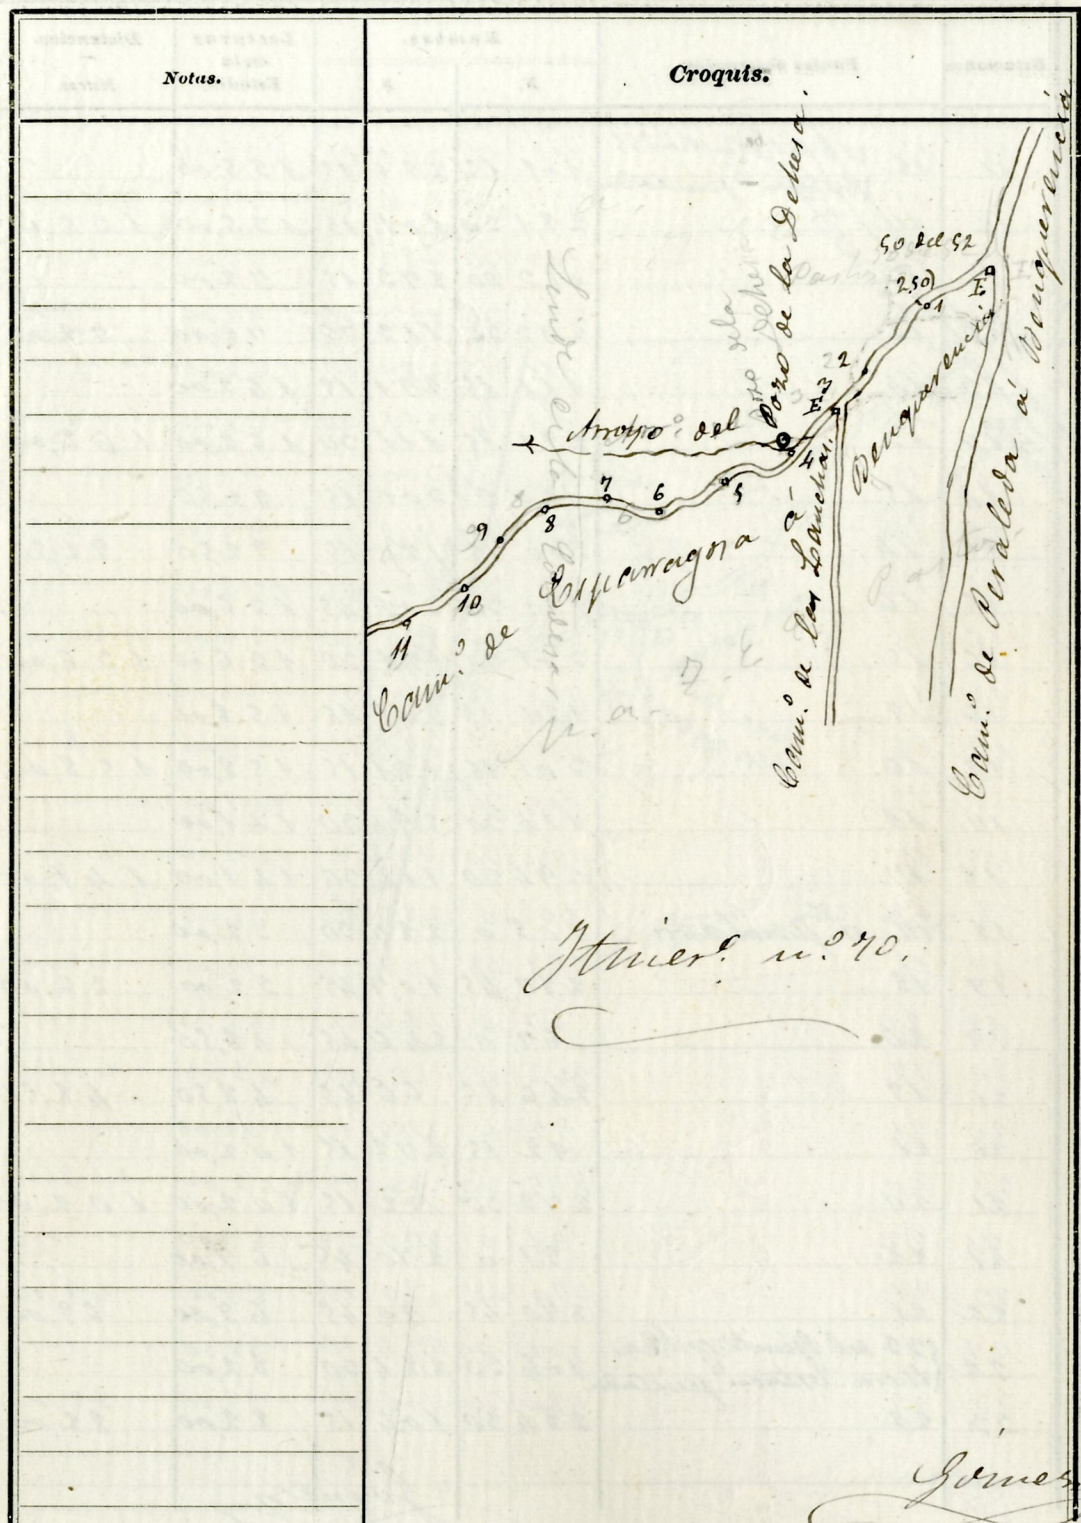 Notas.
Croquis.
50 del 52
(250)
E.
1
2
E. 3
4
5
6
7
8
9
10
11
Arroyo del Pozo de la Dehesa.
Cam.º de Esparragosa á Benquerencia
Cam.º de las Lanchas.
Cam.º de Peraleda á Benquerencia
Itiner.º n.º 70.
Gómez